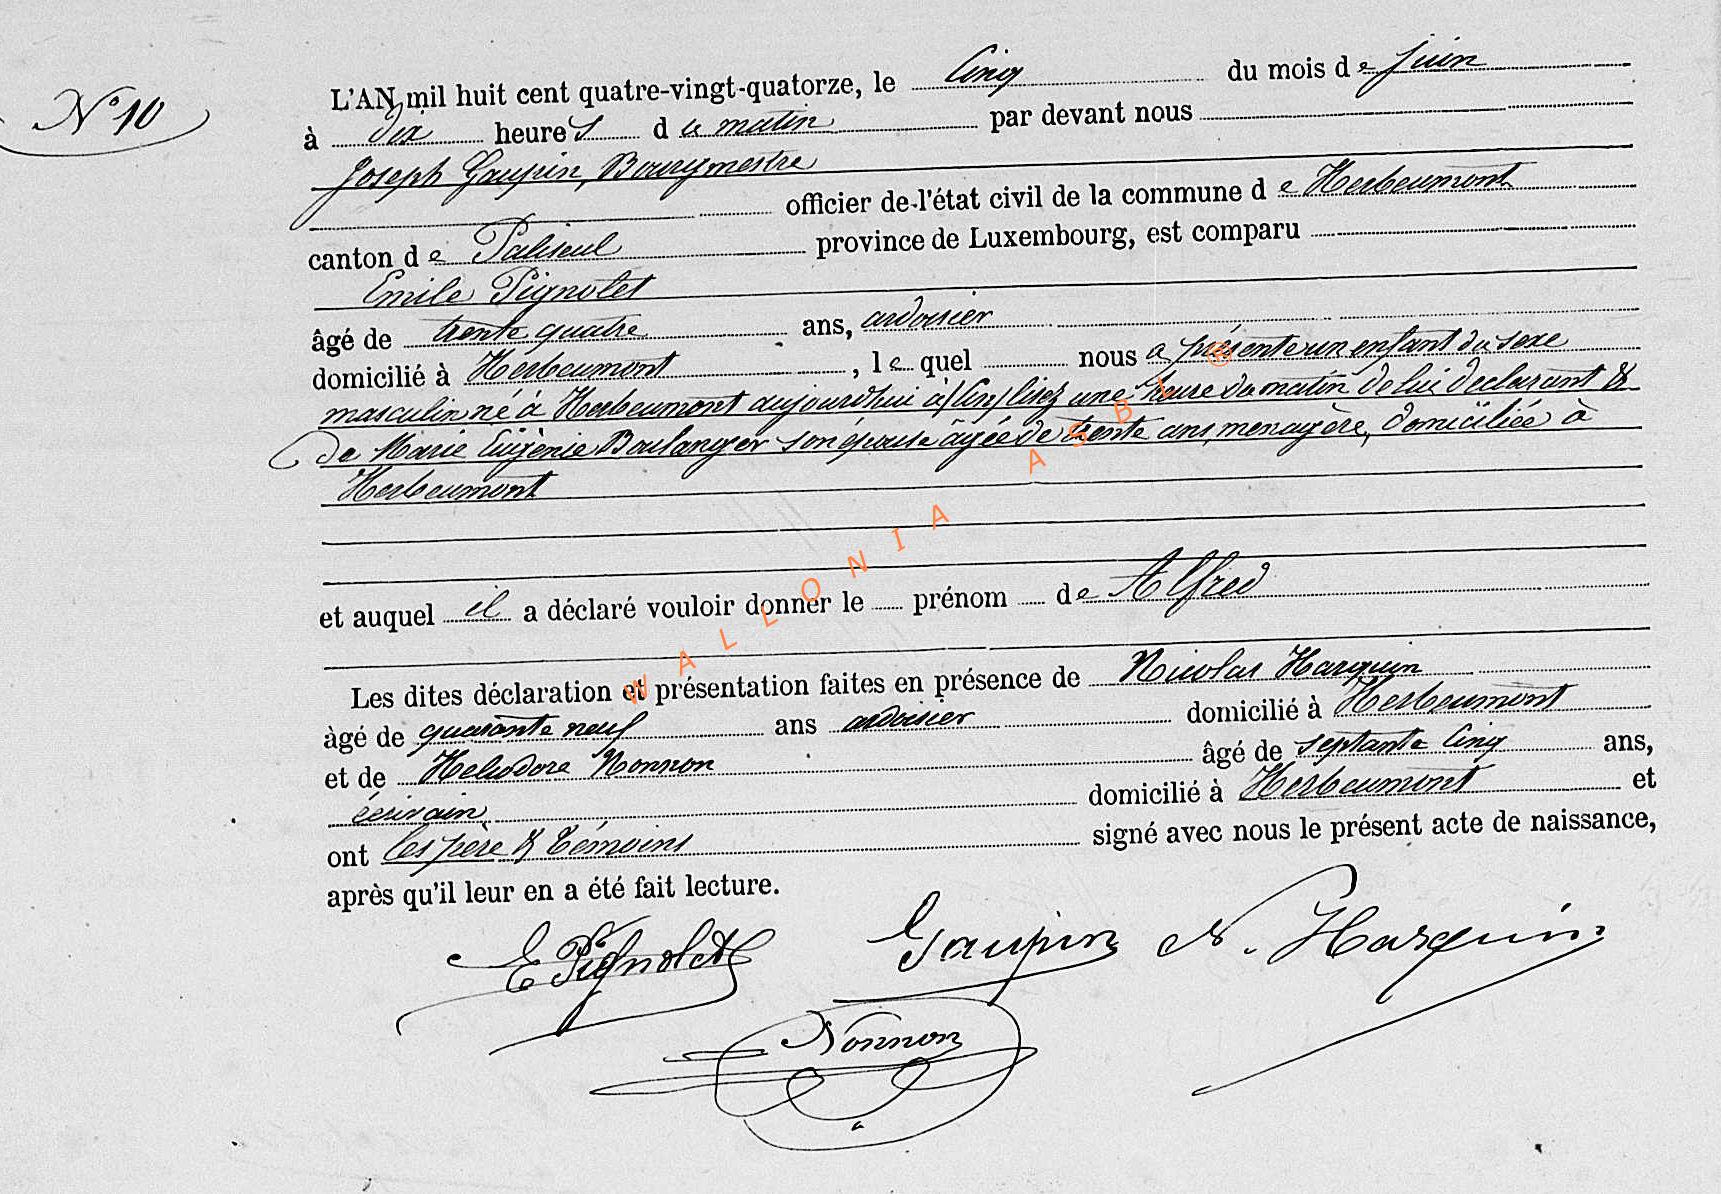 N° 10
L'AN mil huit cent quatre-vingt-quatorze, le Cinq du mois de juin
à dix heures du matin par devant nous
Joseph Gaupin, Bourgmestre
officier de l'état civil de la commune de Herbeumont
canton de Paliseul province de Luxembourg, est comparu
Emile Pignolet
âgé de trente quatre ans, ardoisier
domicilié à Herbeumont, lequel nous a présenté un enfant du sexe
masculin né à Herbeumont aujourd'hui à (cinq) lisez une heure du matin de lui declarant &
de Marie Eugènie Boulanger son épouse âgée de trente ans, menagère, domiciliée à
Herbeumont
et auquel il a déclaré vouloir donner le prénom de Alfred
Les dites déclaration et présentation faites en présence de Nicolas Harquin
àgé de quarante neuf ans ardoisier domicilié à Herbeumont
et de Heliodore Nonnon âgé de septante cinq ans,
écrivain domicilié à Herbeumont et
ont les père & témoins signé avec nous le présent acte de naissance,
après qu'il leur en a été fait lecture.
E Pignolet Gaupin N. Harquin
Nonnon
WALLONIA ASBL ®